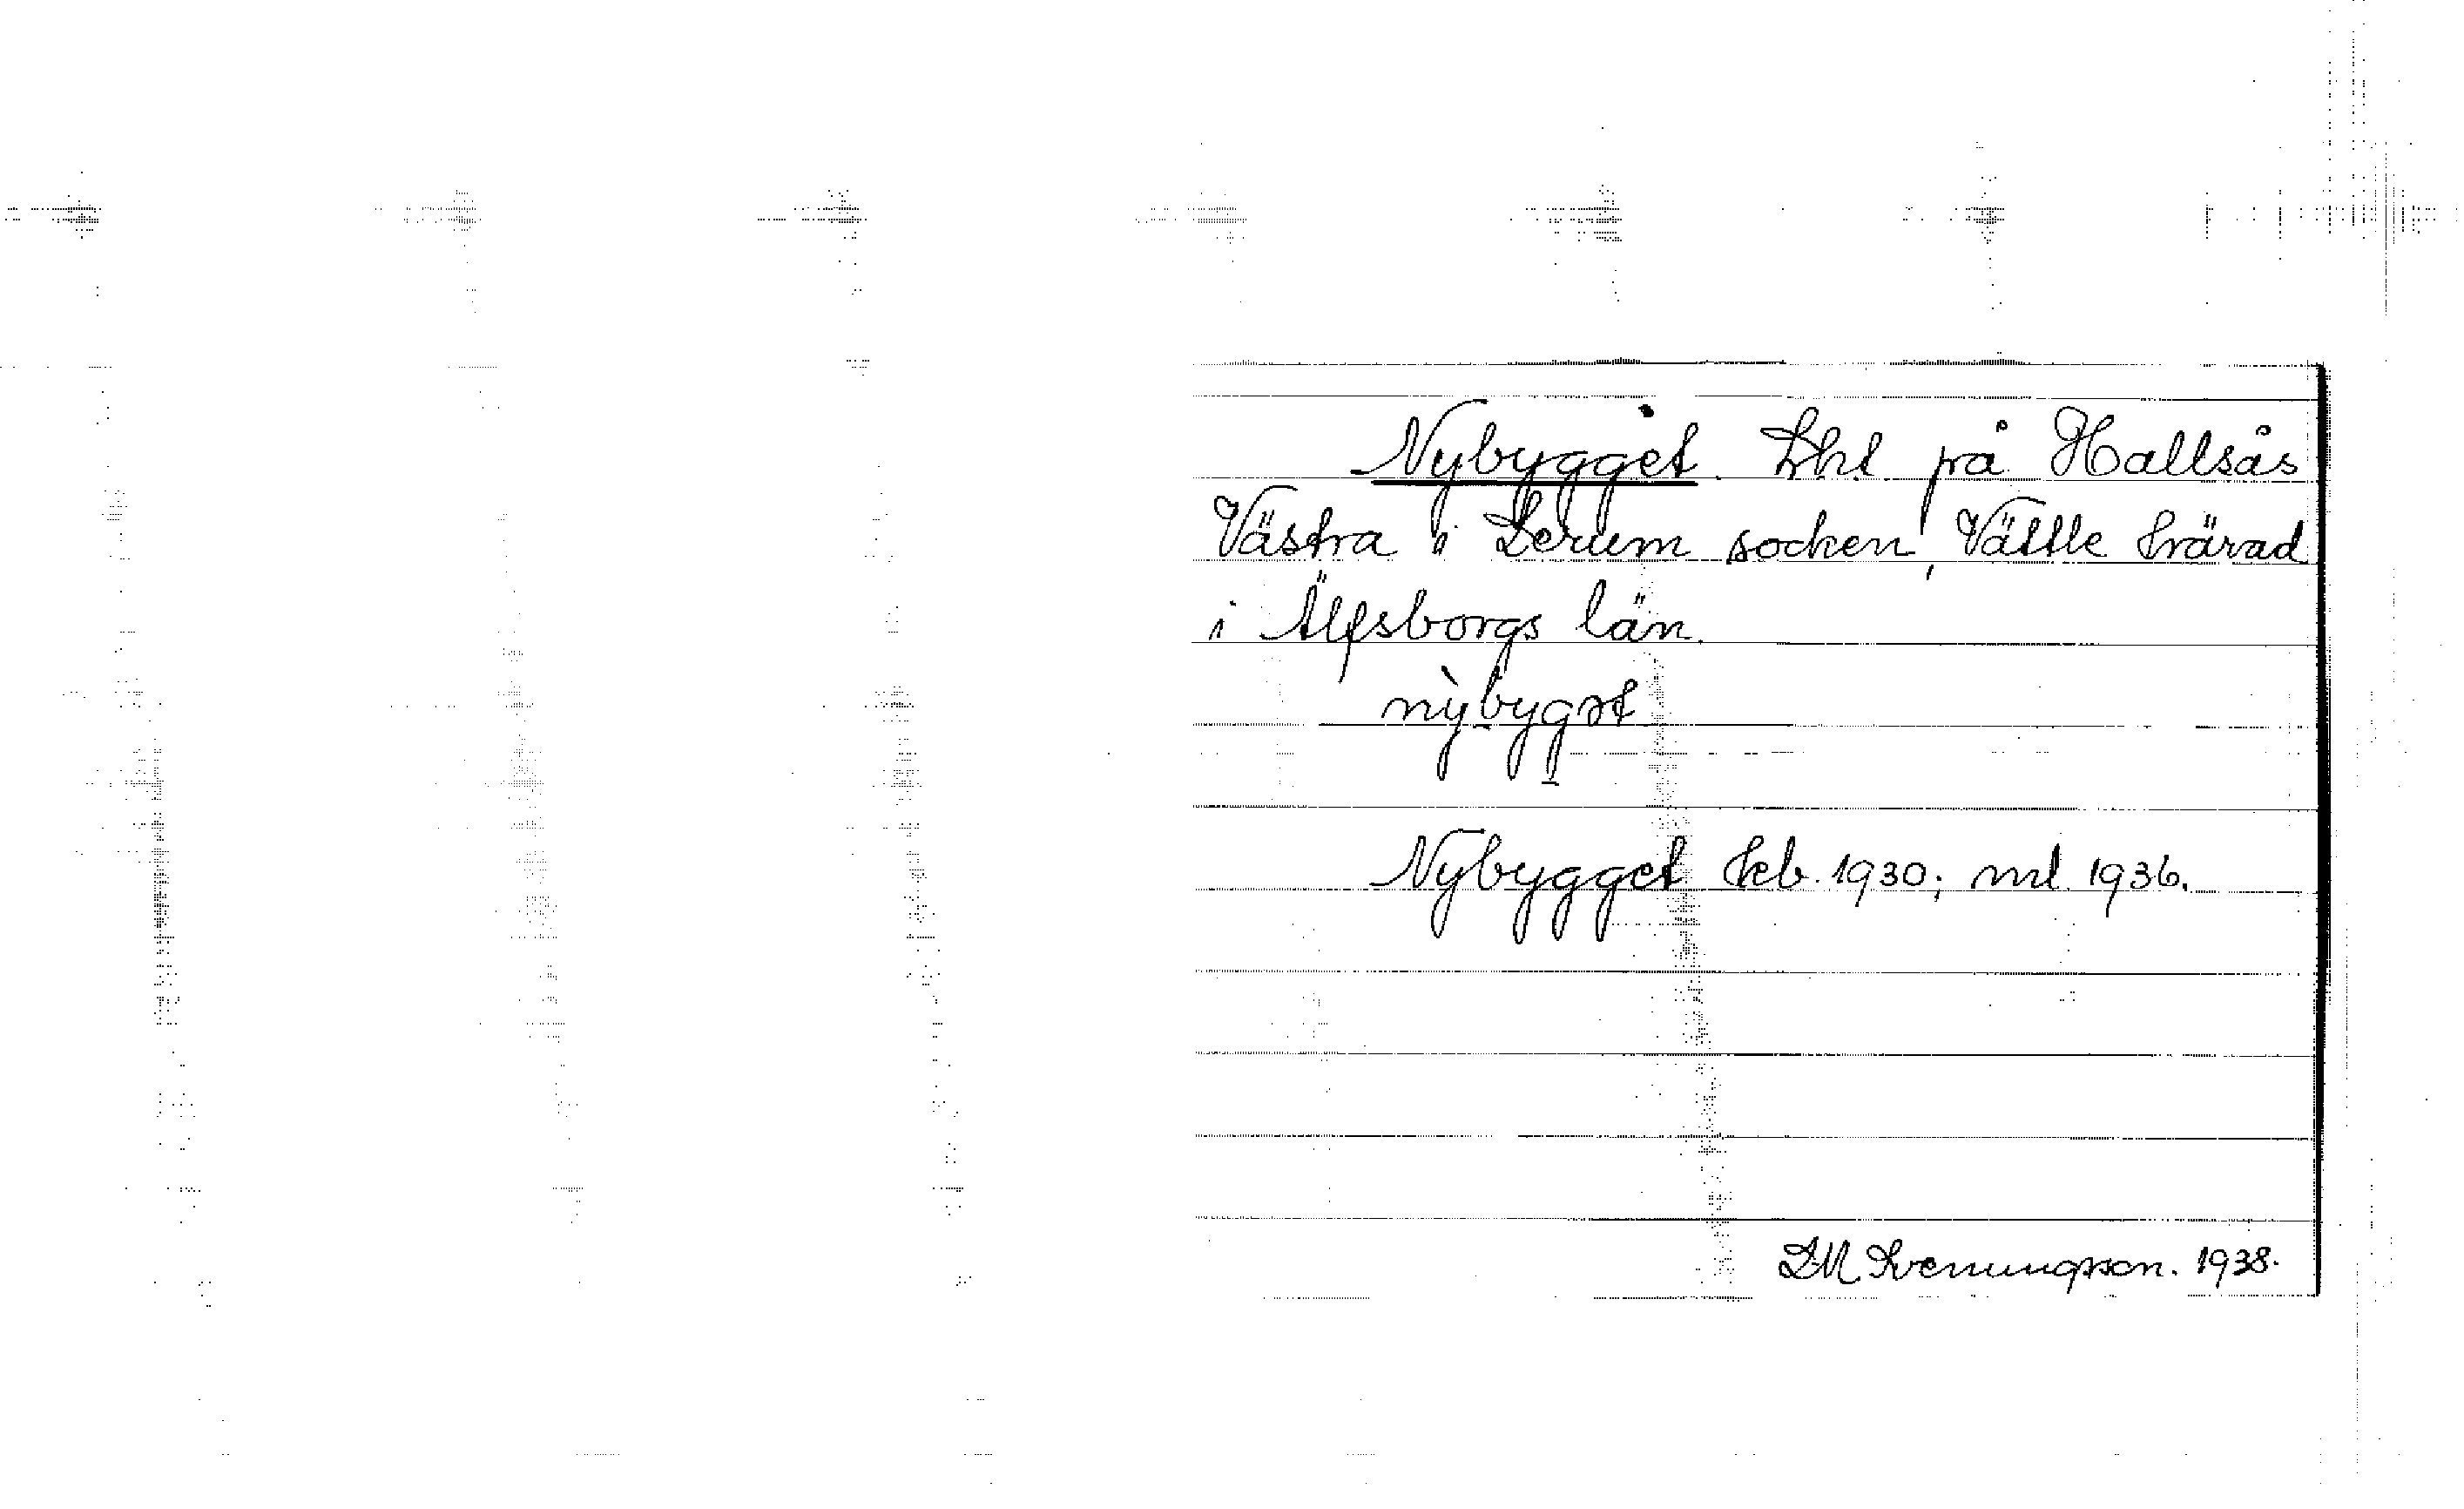 Nybygget Lht på Hallsås
Västra i Lerum socken, Vättle härad
i Älfsborgs län.
nỳbygət
Nybygget Jeb. 1930; ml 1936.
D.M. Svenungsson. 1938.